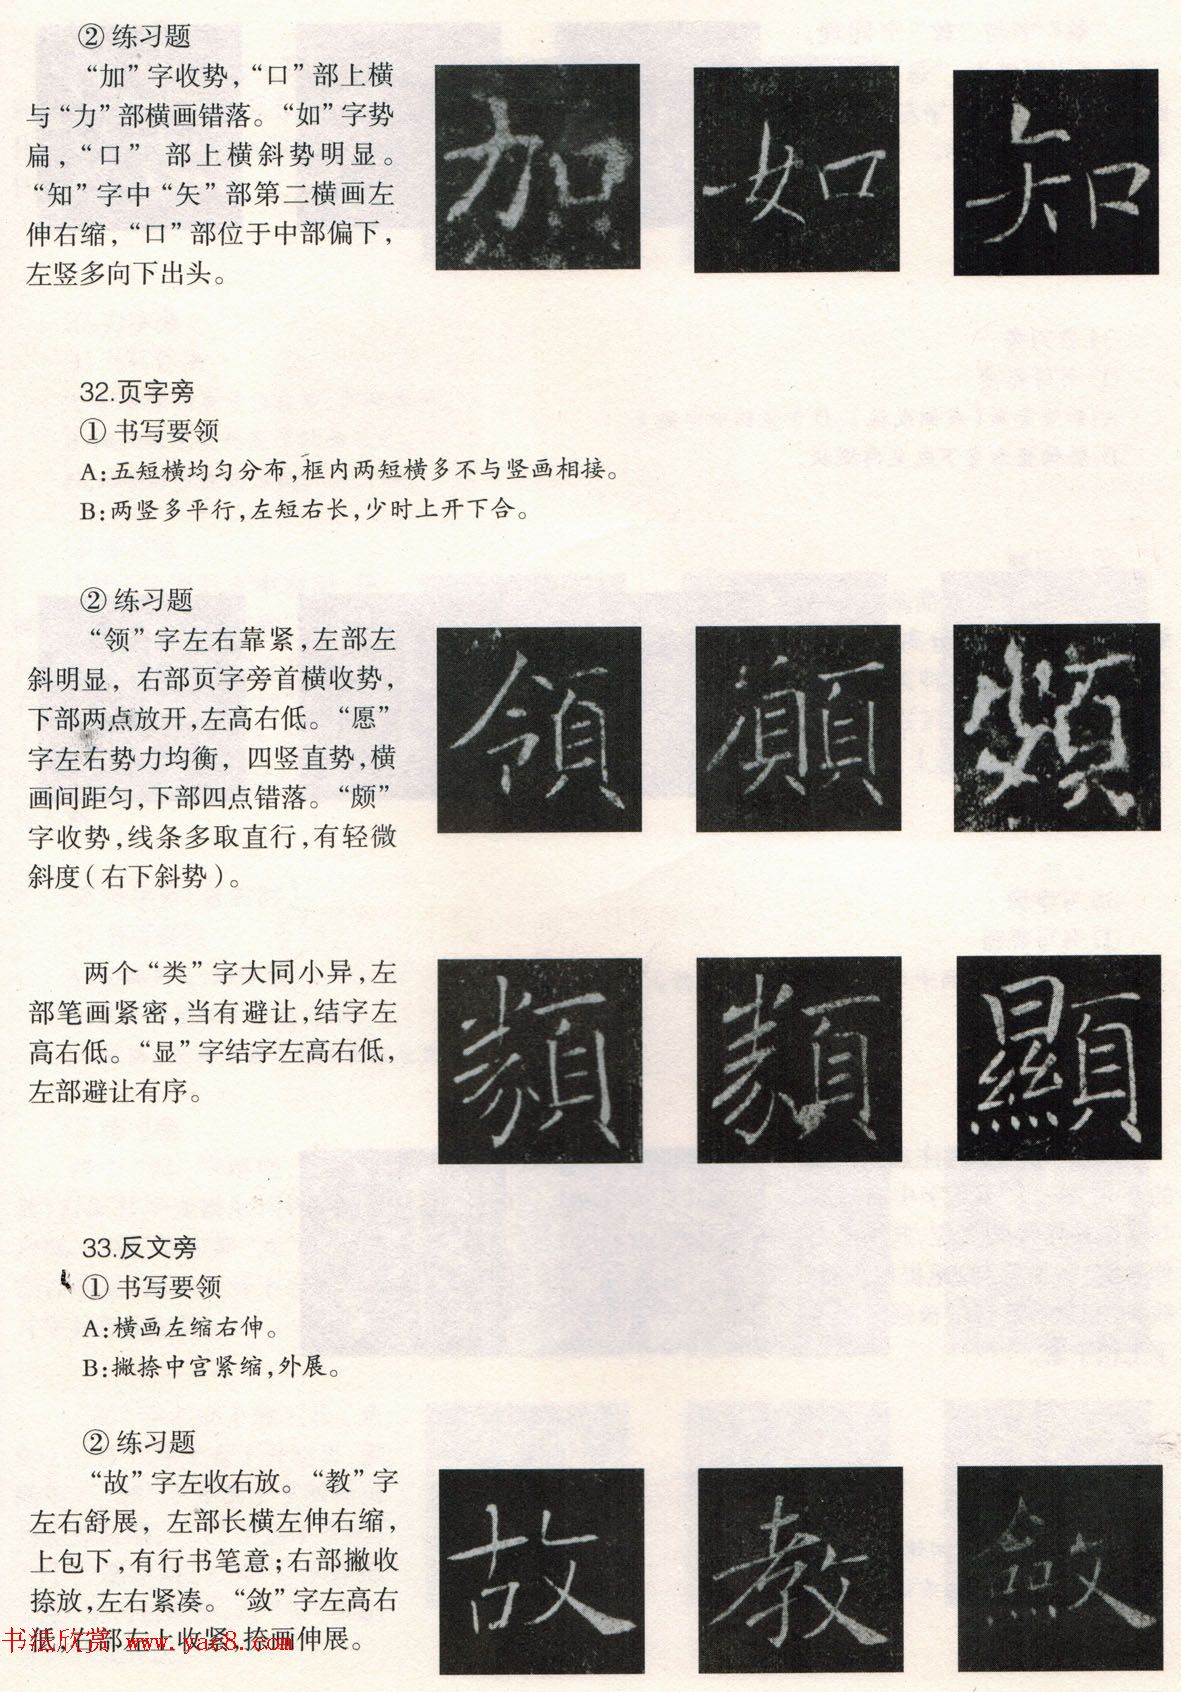 ② 练习题
“加”字收势，“口”部上横
与“力”部横画错落。“如”字势
扁，“口” 部上横斜势明显。
“知”字中“矢”部第二横画左
伸右缩，“口”部位于中部偏下，
左竖多向下出头。
加
如
知
32.页字旁
① 书写要领
A：五短横均匀分布，框内两短横多不与竖画相接。
B：两竖多平行，左短右长，少时上开下合。
② 练习题
“领”字左右靠紧，左部左
斜明显，右部页字旁首横收势，
下部两点放开，左高右低。“愿”
字左右势力均衡，四竖直势，横
画间距匀，下部四点错落。“颇”
字收势，线条多取直行，有轻微
斜度（右下斜势）。
領
類
顯
两个“类”字大同小异，左
部笔画紧密，当有避让，结字左
高右低。“显”字结字左高右低，
左部避让有序。
33.反文旁
① 书写要领
A：横画左缩右伸。
B：撇捺中宫紧缩，外展。
② 练习题
“故”字左收右放。“教”字
左右舒展，左部长横左伸右缩，
上包下，有行书笔意；右部撇收
捺放，左右紧凑。“敛”字左高右
低，右部左上收紧，捺画伸展。
故
教
斂
书法欣赏 www.yac8.com